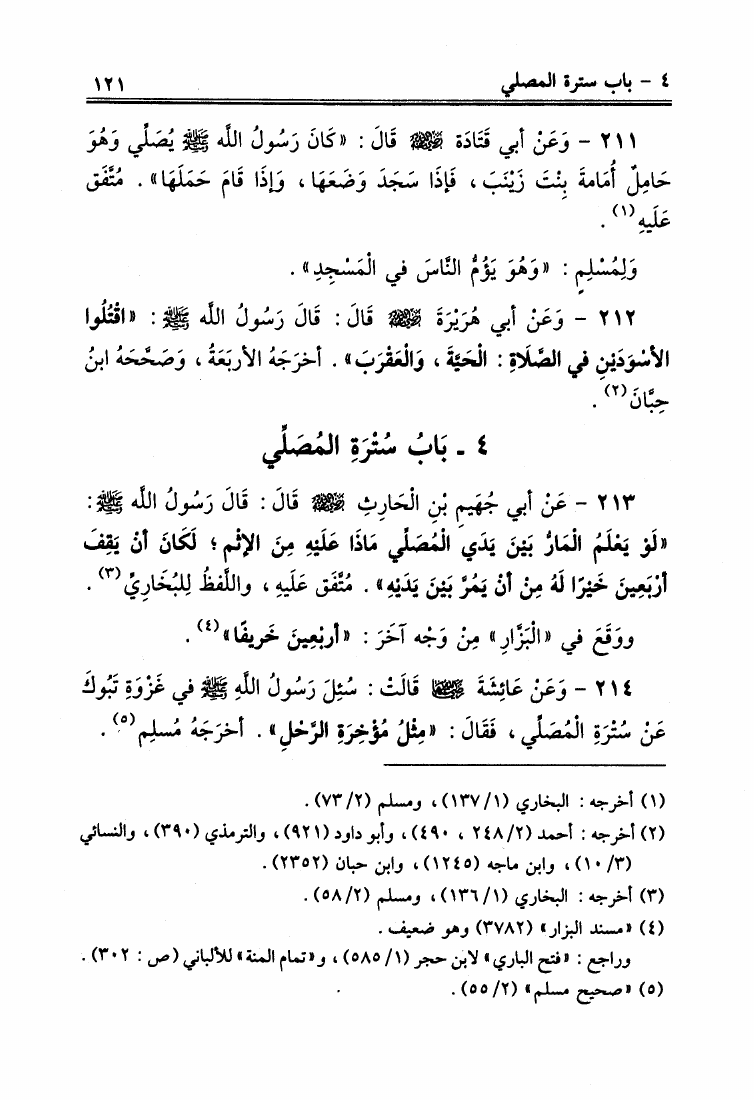 ٤ - باب سترة المصلي ١٢١
٢١١ - وَعَنْ أبي قَتَادَةَ ﵁ قَالَ: «كَانَ رَسُولُ اللَّه ﷺ يُصَلِّي وَهُوَ
حَامِلٌ أُمَامةَ بِنْتَ زَيْنَبَ، فَإذَا سَجَدَ وَضَعَهَا، وَإذَا قَامَ حَمَلَهَا». مُتَّفَق
عَلَيهِ(١).
وَلِمُسْلِمٍ: «وَهُوَ يَؤُمُّ النَّاسَ في الْمَسْجِدِ».
٢١٢ - وَعَنْ أبي هُرَيْرَةَ ﵁ قَالَ: قَالَ رَسُولُ اللَّه ﷺ: «اقْتُلُوا
الأسْوَدَيْنِ في الصَّلَاةِ: الْحَيَّةَ، وَالْعَقْرَبَ». أخرَجَهُ الأربَعَةُ، وَصَحَّحَهُ ابنُ
حِبَّانَ(٢).
٤ - بَابُ سُتْرَةِ المُصَلِّي
٢١٣ - عَنْ أبي جُهَيمِ بْنِ الْحَارِثِ ﵁ قَالَ: قَالَ رَسُولُ اللَّه ﷺ:
«لَوْ يَعْلَمُ الْمَارُّ بَيْنَ يَدَي الْمُصَلِّي مَاذَا عَلَيْهِ مِنَ الإثْمِ؛ لَكَانَ أنْ يَقِفَ
أرْبَعِينَ خَيْرًا لَهُ مِنْ أنْ يَمُرَّ بَيْنَ يَدَيْهِ». مُتَّفَق عَلَيهِ، واللَّفظُ لِلبُخَاريِّ(٣).
ووَقَعَ في «الْبَزَّارِ» مِنْ وَجْه آخَرَ: «أربَعِينَ خَريفًا»(٤).
٢١٤ - وَعَنْ عَائِشَةَ ﵂ قَالَتْ: سُئِلَ رَسُولُ اللَّهِ ﷺ في غَزْوَةِ تَبُوكَ
عَنْ سُتْرَةِ الْمُصَلِّي، فَقَالَ: «مِثْلُ مُؤْخِرَةِ الرَّحْلِ». أخرَجَهُ مُسلِم(٥).
(١) أخرجه: البخاري (١/١٣٧)، ومسلم (٢/٧٣).
(٢) أخرجه: أحمد (٢/٢٤٨، ٤٩٠)، وأبو داود (٩٢١)، والترمذي (٣٩٠)، والنسائي
(٣/١٠)، وابن ماجه (١٢٤٥)، وابن حبان (٢٣٥٢).
(٣) أخرجه: البخاري (١/١٣٦)، ومسلم (٢/٥٨).
(٤) «مسند البزار» (٣٧٨٢) وهو ضعيف.
وراجع: «فتح الباري» لابن حجر (١/٥٨٥)، و«تمام المنة» للألباني (ص: ٣٠٢).
(٥) «صحيح مسلم» (٢/٥٥).